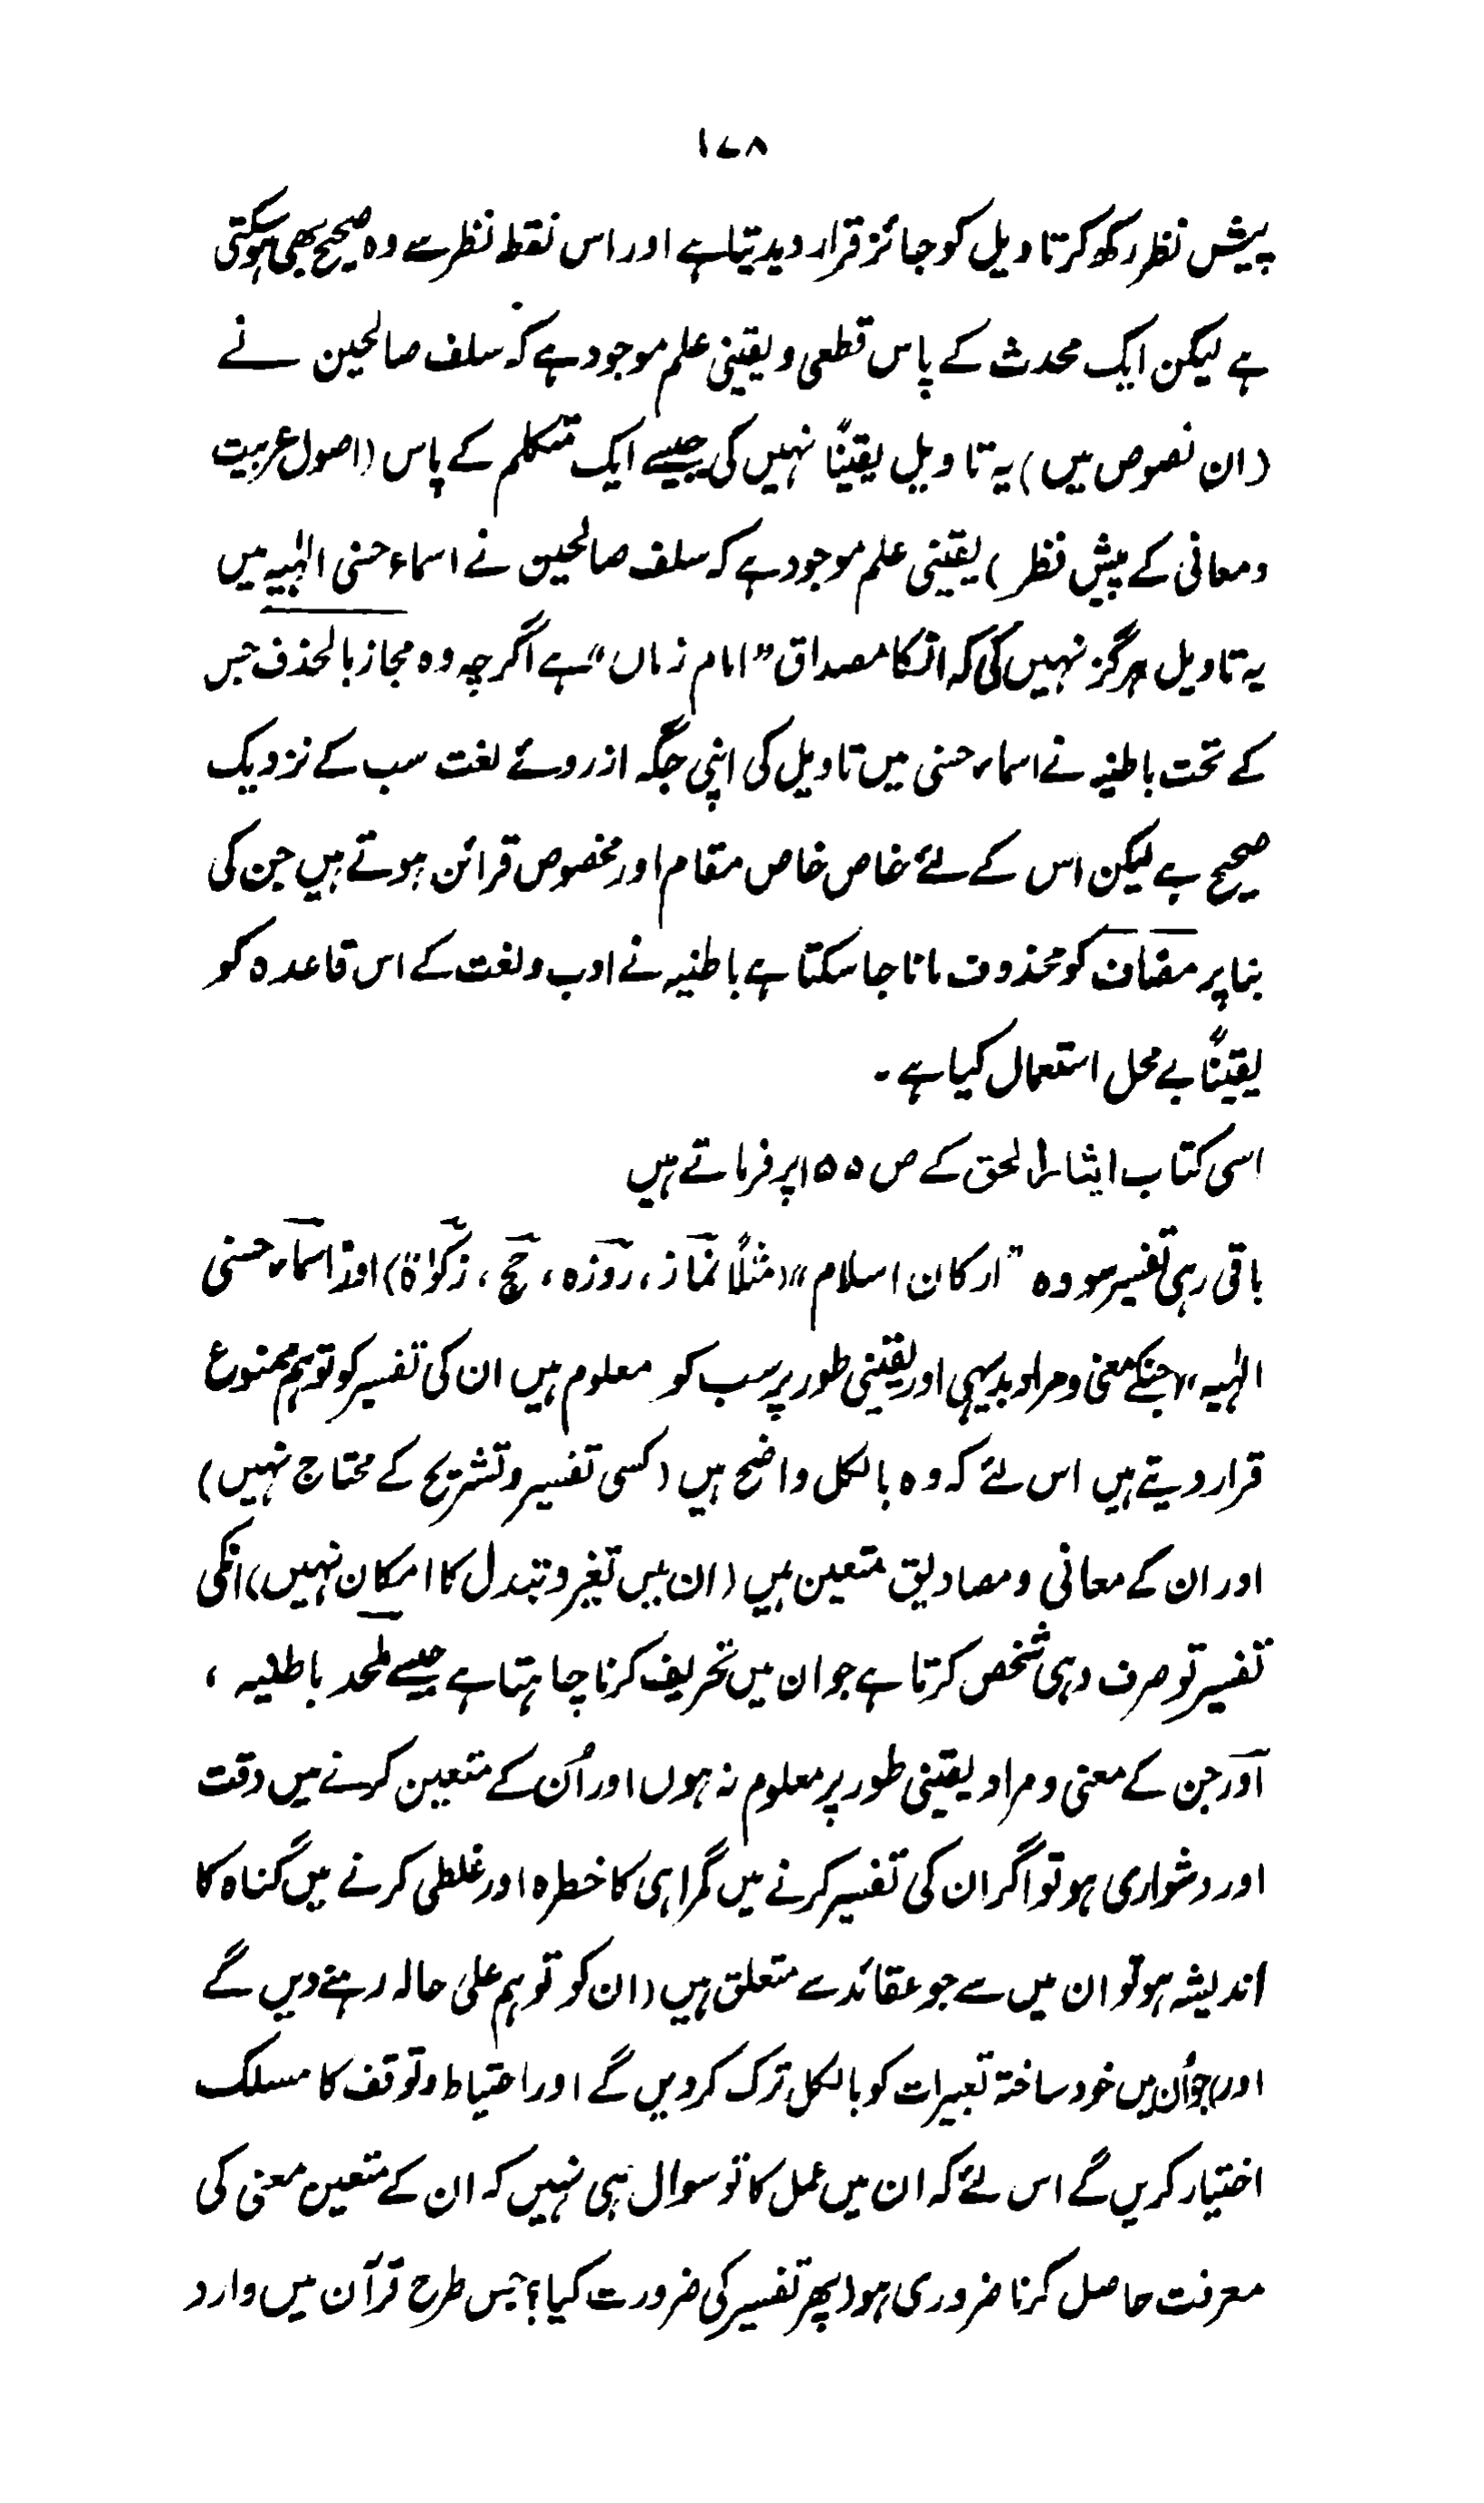 ۱۷۸
پیش نظر رکھ کر تاویل کو جائز قرار دیدیتا ہے اور اس نقطہ نظر سے وہ صحیح بھی ہوسکتی
ہے لیکن ایک محدث کے پاس قطعی و یقینی علم موجود ہے کہ سلف صالحین نے
(ان نصوص میں) یہ تاویل یقیناً نہیں کی جیسے ایک متکلم کے پاس (اصول عربیت
ومعانی کے پیش نظر) یقینی علم موجود ہے کہ سلف صالحین نے اسماء حسنی الٰہیہ میں
یہ تاویل ہرگز نہیں کی کہ انکا مصداق "امام زماں" ہے اگرچہ وہ مجاز بالحذف جس
کے تحت باطنیہ نے اسماء حسنی میں تاویل کی اپنی جگہ ازروئے لغت سب کے نزدیک
صحیح ہے لیکن اس کے لئے خاص خاص مقام اور مخصوص قرائن ہوتے ہیں جن کی
بنا پر مضاف کو محذوف مانا جاسکتا ہے باطنیہ نے ادب ولغت کے اس قاعدہ کو
یقیناً بے محل استعمال کیا ہے۔
اسی کتاب ایثار الحق کے ص ۱۵۵ پر فرماتے ہیں
باقی رہی تفسیر سو وہ "ارکان اسلام" (مثلاً نماز، روزہ، حج، زکواۃ) اور "اسماء حسنی
الٰہیہ" جنکے معنی ومراد بدیہی اور یقینی طور پر سب کو معلوم ہیں ان کی تفسیر کو تو ہم ممنوع
قرار دیتے ہیں اس لئے کہ وہ بالکل واضح ہیں (کسی تفسیر وتشریح کے محتاج نہیں)
اور ان کے معانی ومصادیق متعین ہیں (ان میں تغیر وتبدل کا امکان نہیں) انکی
تفسیر تو صرف وہی شخص کرتا ہے جو ان میں تحریف کرنا چاہتا ہے جیسے ملحد باطنیہ،
اور جن کے معنی ومراد یقینی طور پر معلوم نہ ہوں اور اُن کے متعین کرنے میں دقت
اور دشواری ہو تو اگر ان کی تفسیر کرنے میں گمراہی کا خطرہ اور غلطی کرنے میں گناہ کا
اندیشہ ہو تو ان میں سے جو عقائد سے متعلق ہیں (ان کو تو ہم علیٰ حالہ رہنے دیں گے
اور) جو اُن میں خود ساختہ تعبیرات کو بالکل ترک کردیں گے اور احتیاط وتوقف کا مسلک
اختیار کریں گے اس لئے کہ ان میں عمل کا تو سوال ہی نہیں کہ ان کے متعین معنی کی
معرفت حاصل کرنا ضروری ہو (پھر تفسیر کی ضرورت کیا؟ جس طرح قرآن میں وارد